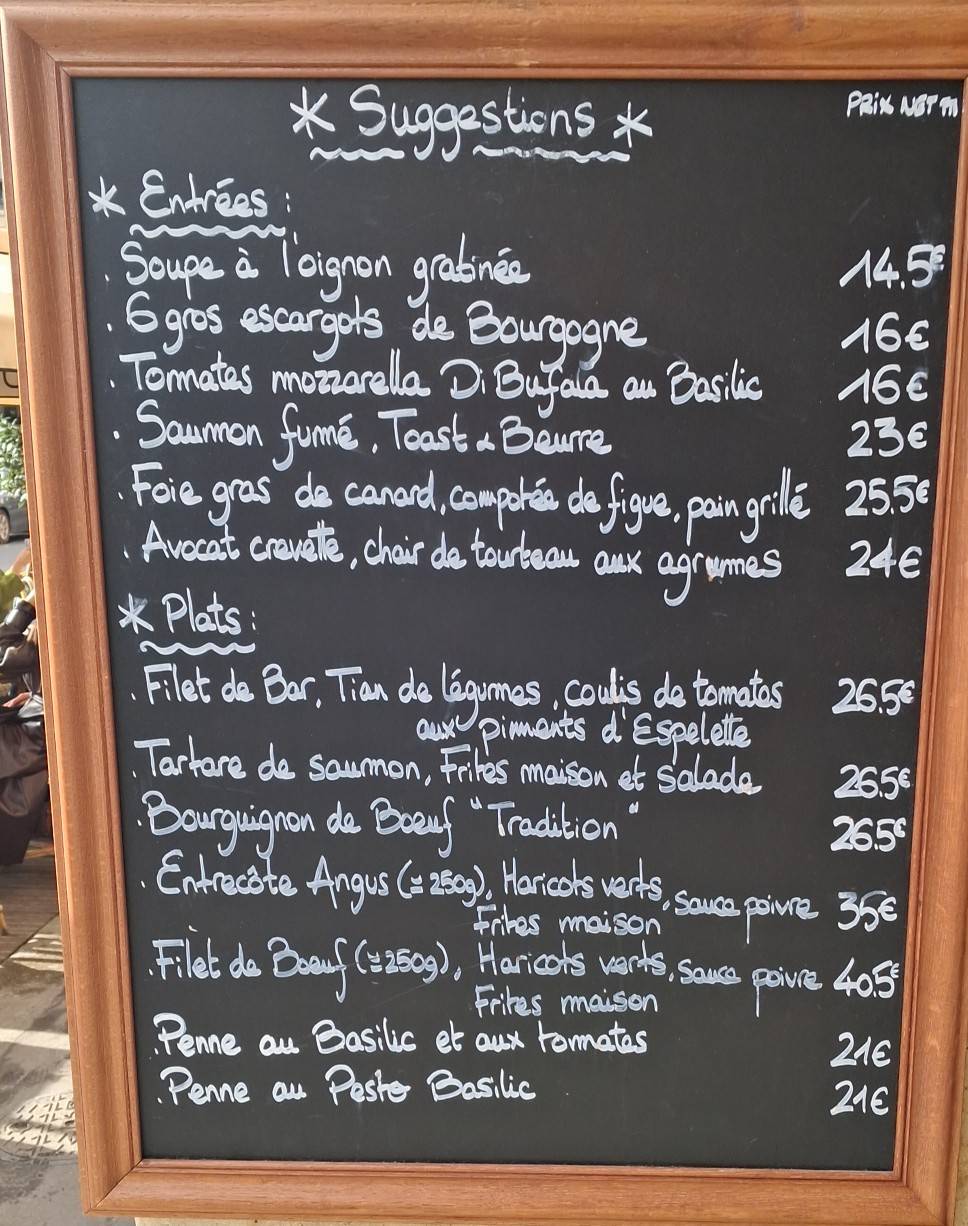 * Suggestions *
PRIX NET
* Entrées :
. Soupe à l'oignon gratinée 14.5€
. 6 gros escargots de Bourgogne 16€
. Tomates mozzarella Di Bufala au Basilic 16€
. Saumon fumé, Toast & Beurre 23€
. Foie gras de canard, compotée de figue, pain grillé 25.5€
. Avocat crevette, chair de tourteau aux agrumes 24€
* Plats :
. Filet de Bar, Tian de légumes, coulis de tomates 26.5€
aux piments d'Espelette
. Tartare de saumon, Frites maison et Salade 26.5€
. Bourguignon de Boeuf "Tradition" 26.5€
. Entrecôte Angus (≃250g), Haricots verts, sauce poivre 35€
Frites maison
. Filet de Boeuf (≃250g), Haricots verts, sauce poivre 40.5€
Frites maison
. Penne au Basilic et aux tomates 21€
. Penne au Pesto Basilic 21€